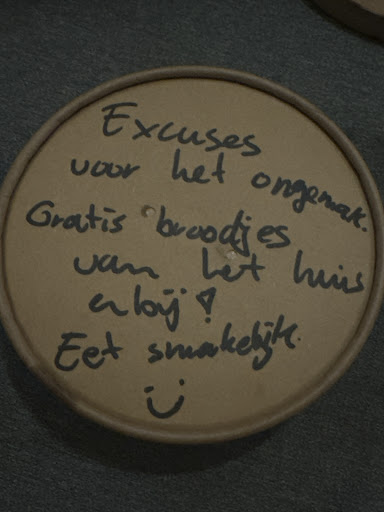 Excuses
voor het ongemak.
Gratis broodjes
van het huis
erbij!
Eet smakelijk.